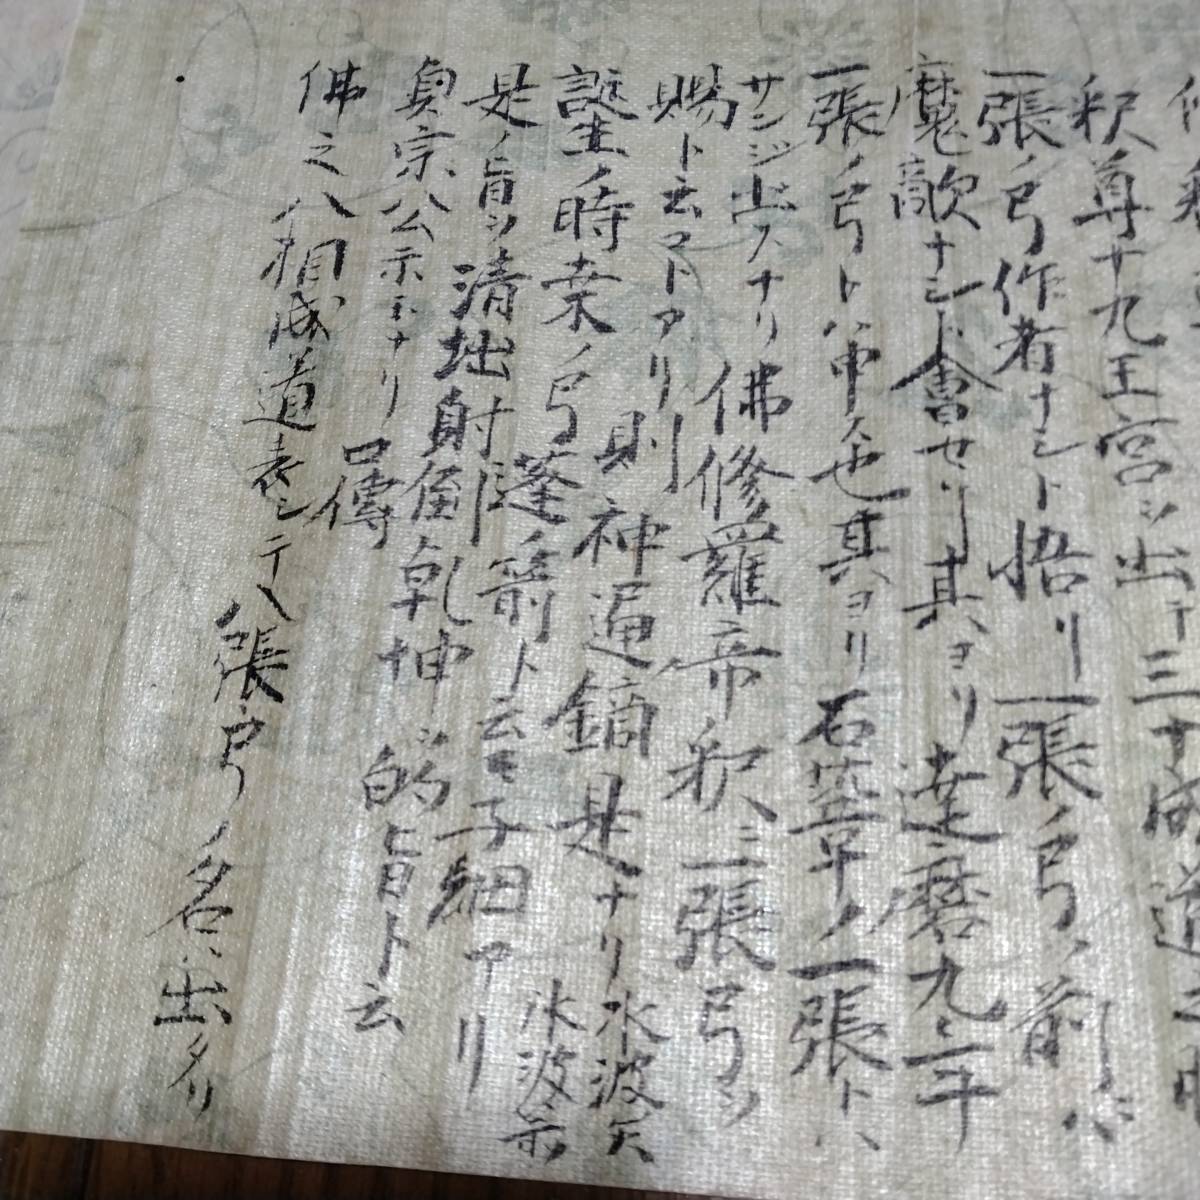 釈尊十九王宮ヲ出テ三十成道
一張ノ弓作者ナシト悟リ一張ノ弓ノ前ニハ
魔敵ナシト會セリ其ヨリ達磨九年
一張ノ弓トハ申ス也其ヨリ石鞏ノ一張トハ
サンジ出スナリ佛修羅帝釈ニ一張弓ヲ
賜ト云コトアリ則神通鏑是ナリ水波
誕生ノ時桒ノ弓蓬ノ箭ト云モ子細アリ水波
是ノ旨ヲ清拙射倒乾坤的旨ト云
貞宗公示玉ナリ口傳
佛之八相成道表シテ八張弓ノ名ハ出タリ